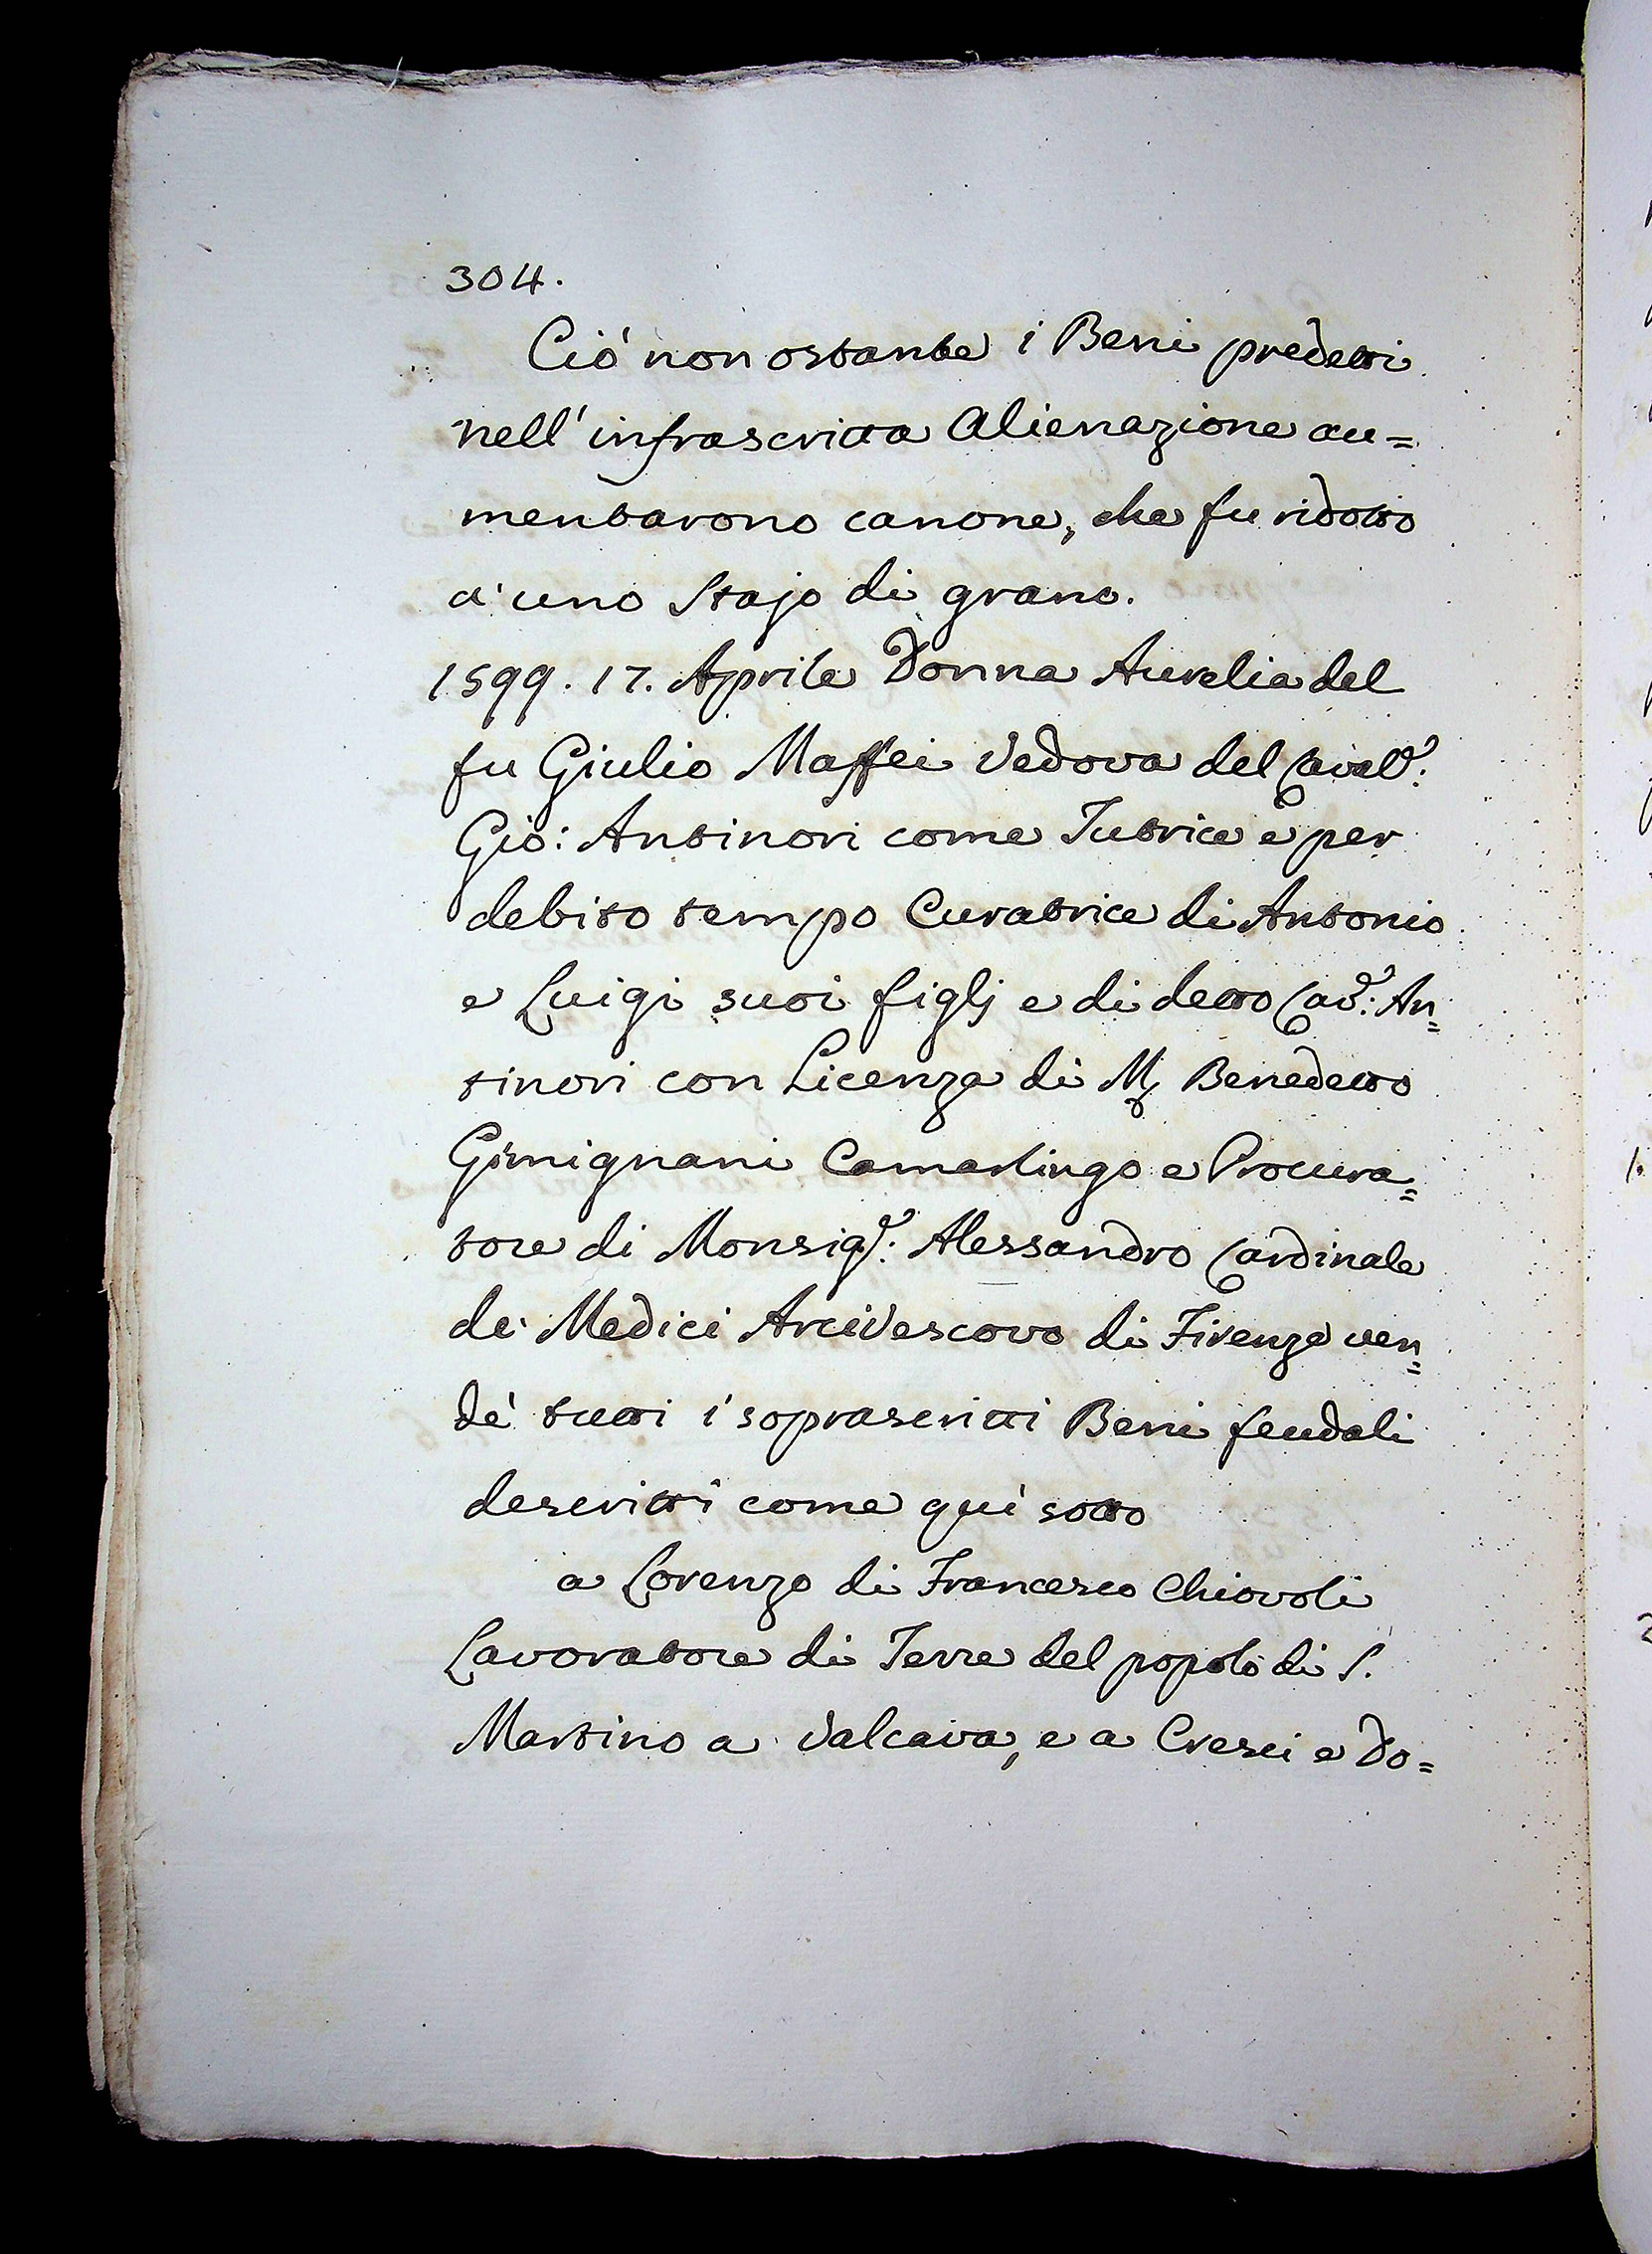 304.
Ciò non ostante i Beni predetti
nell' infrascritta Alienazione au=
mentarono canone, che fu ridotto
a' uno Stajo di grano.
1599. 17. Aprile Donna Aurelia del
fu Giulio Maffei Vedova del Caval:
Gio: Antinori come Tutrice e per
debito tempo Curatrice di Antonio
e Luigi suoi figlj e di detto Cav: An=
tinori con Licenza di M. Benedetto
Gimignani Camarlingo e Procura=
tore di Monsig: Alessandro Cardinale
de' Medici Arcivescovo di Firenze ven=
dè tutti i soprascritti Beni feudali
descritti come quì sotto
a Lorenzo di Francesco Chiovoli
Lavoratore di Terre del popolo di S.
Martino a Valcava, e a Cresci e Do=